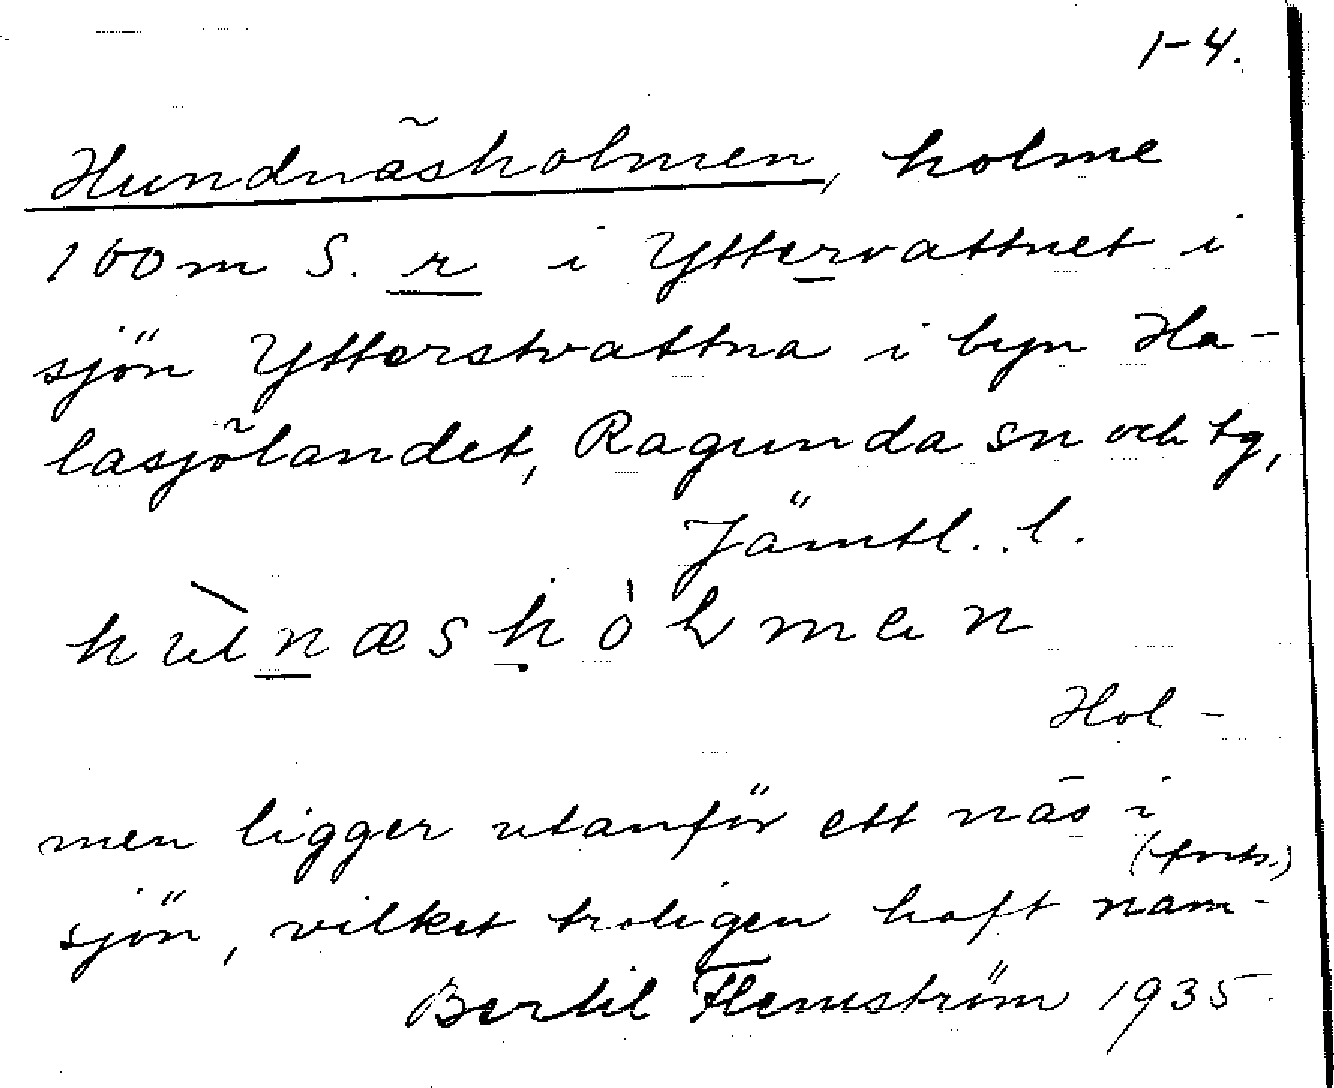 1-4.
Hundnäsholmen, holme
100m S. r i Yttervattnet i
sjön Ytterstvattna i byn Ha-
lasjölandet, Ragunda sn och tg,
Jämtl. l.
Hol-
men ligger utanför ett näs i
(forts.)
sjön, vilket troligen haft nam-
Bertil Flemström 1935